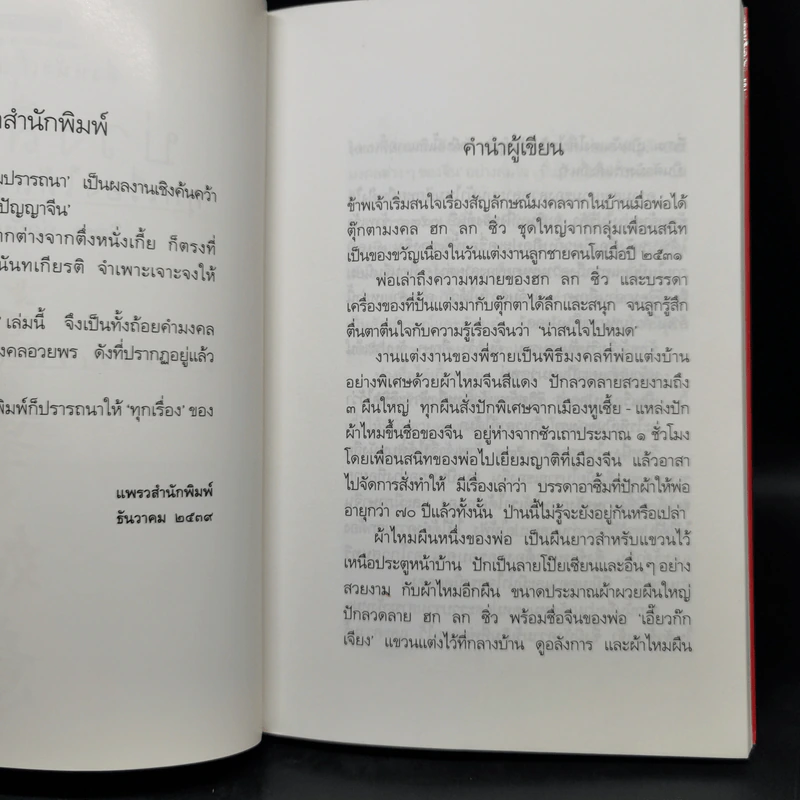 สำนักพิมพ์
ปรารถนา' เป็นผลงานเชิงค้นคว้า
ปัญญาจีน'
ต่างจากตึ่งหนั่งเกี้ย ก็ตรงที่
นันทเกียรติ จำเพาะเจาะจงให้
เล่มนี้ จึงเป็นทั้งถ้อยคำมงคล
งคลอวยพร ดังที่ปรากฏอยู่แล้ว
พิมพ์ก็ปรารถนาให้ 'ทุกเรื่อง' ของ
แพรวสำนักพิมพ์
ธันวาคม ๒๕๓๙
คำนำผู้เขียน
ข้าพเจ้าเริ่มสนใจเรื่องสัญลักษณ์มงคลจากในบ้านเมื่อพ่อได้
ตุ๊กตามงคล ฮก ลก ซิ่ว ชุดใหญ่จากกลุ่มเพื่อนสนิท
เป็นของขวัญเนื่องในวันแต่งงานลูกชายคนโตเมื่อปี ๒๕๓๑
พ่อเล่าถึงความหมายของฮก ลก ซิ่ว และบรรดา
เครื่องของที่ปั้นแต่งมากับตุ๊กตาได้ลึกและสนุก จนลูกรู้สึก
ตื่นตาตื่นใจกับความรู้เรื่องจีนว่า 'น่าสนใจไปหมด'
งานแต่งงานของพี่ชายเป็นพิธีมงคลที่พ่อแต่งบ้าน
อย่างพิเศษด้วยผ้าไหมจีนสีแดง ปักลวดลายสวยงามถึง
๓ ผืนใหญ่ ทุกผืนสั่งปักพิเศษจากเมืองหูเซี้ย - แหล่งปัก
ผ้าไหมขึ้นชื่อของจีน อยู่ห่างจากซัวเถาประมาณ ๑ ชั่วโมง
โดยเพื่อนสนิทของพ่อไปเยี่ยมญาติที่เมืองจีน แล้วอาสา
ไปจัดการสั่งทำให้ มีเรื่องเล่าว่า บรรดาอาซิ้มที่ปักผ้าให้พ่อ
อายุกว่า ๗๐ ปีแล้วทั้งนั้น ป่านนี้ไม่รู้จะยังอยู่กันหรือเปล่า
ผ้าไหมผืนหนึ่งของพ่อ เป็นผืนยาวสำหรับแขวนไว้
เหนือประตูหน้าบ้าน ปักเป็นลายโป๊ยเซียนและอื่นๆ อย่าง
สวยงาม กับผ้าไหมอีกผืน ขนาดประมาณผ้าผวยผืนใหญ่
ปักลวดลาย ฮก ลก ซิ่ว พร้อมชื่อจีนของพ่อ 'เอี๊ยวก๊ก
เจียง' แขวนแต่งไว้ที่กลางบ้าน ดูอลังการ และผ้าไหมผืน